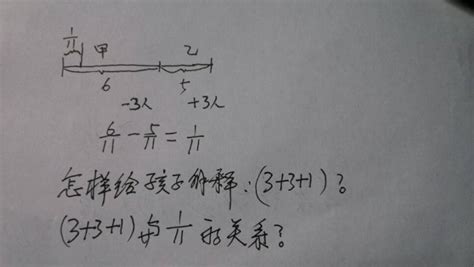 1/11 甲 乙
6 5
-3人 +3人
6/11 - 5/11 = 1/11
怎样给孩子解释:(3+3+1)?
(3+3+1)与 1/11 的关系?